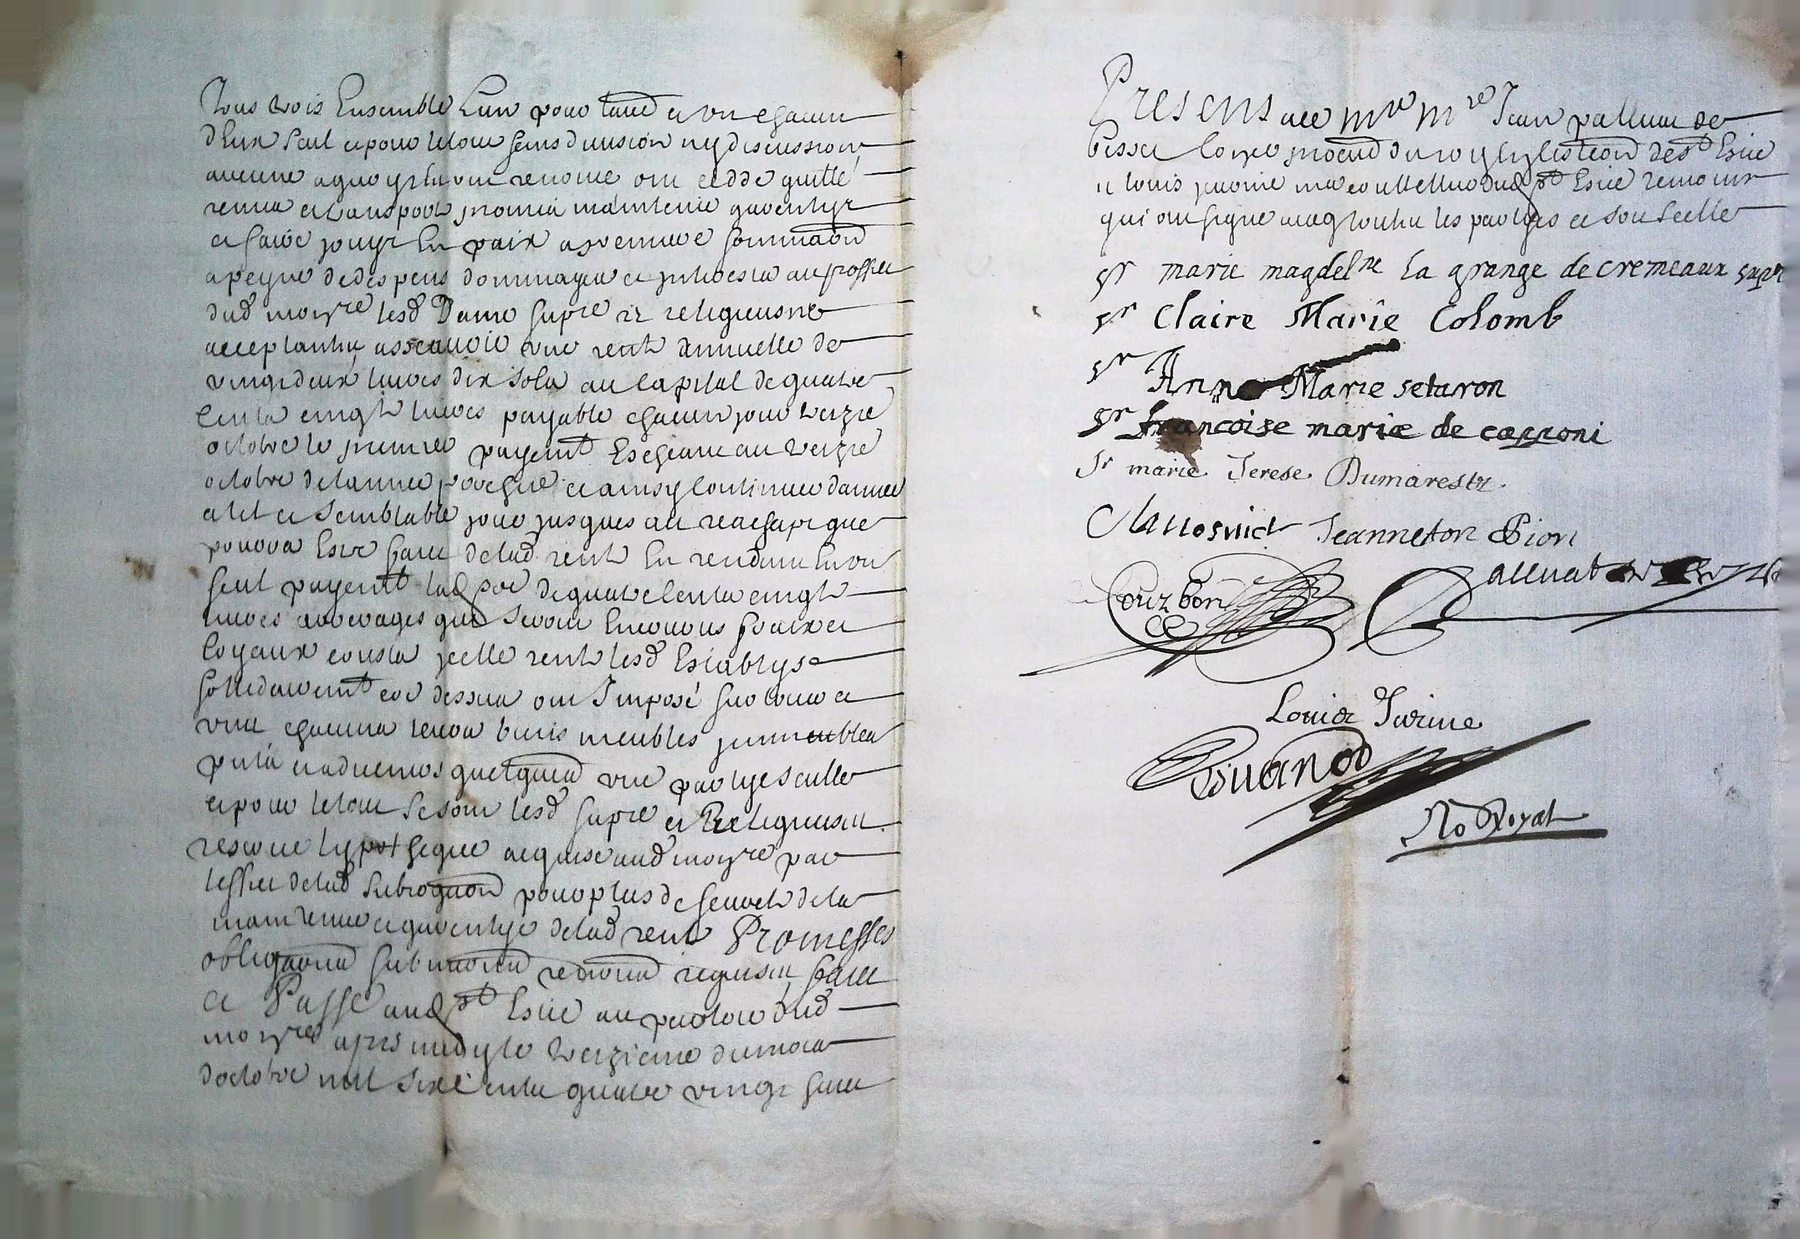 Tous trois Ensemble L'un pour lautre et un chacun
d'Eux seul et pour le tout sans division ny discussion
aucune a quoy ils ont renoncé ont ceddé quitté
remis et transporté promis maintenir garentyr
et faire jouyr En paix a perpetuité
a peyne de despens dommages et interests au proffict
dud monre lesd Dames supre et religieuses
acceptantes assavoir une rente annuelle de
vingt deux livres dix sols au capital de quatre
Cents cinqte livres payable chacun jour treize
octobre le premier payemt Escheant au treize
octobre de lannee prochne et ainsy Continuer dannee
a tel et semblable jour jusques au reachapt que
pourra Estre faict de lad rente En rendant En un
seul payemt lad so͞e de quatre Cents cinqte
livres arrerages qui seront Encourus fraix et
loyaux cousts icelle rente lesd Establys
sollidairemt co͞e dessus ont Imposé sur tous et
uns chacuns leurs biens meubles immeubles
pnts et advenirs quelconques une partye seulle
et pour le tout se sont lesd supre et Religieuses
reservé lypotheque acquise aud monre par
leffect de lad subrogaon pour plus de seureté de la
maintenue et garentye de lad rente Promesses
obligaons submissions renonciaons requises faict
et Passé aud St Estie au parloir dud
monre apres midy le treizieme du mois
doctobre mil six Cents quatre vingt sept
Presens
Mre Jean palluat de
besset Coner du roy En lelection de St Estie
et louis jurine me coustellier dud St Estie temoins
qui ont signé avec touttes les partyes ce sont scelle
sr marie magdelne La grange de cremeaux supr
sr Claire Marie Colomb
sr Anne Marie setaron
sr francoise marie de capponi
Sr marie Terese Dumarestz.
Jeanneton Pion
Courbon
Palluat
Louis Jurine
No Royal